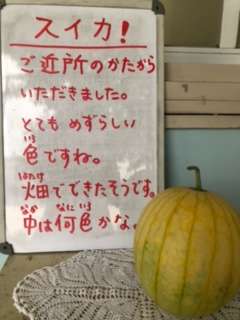 スイカ!
ご近所のかたから
いただきました。
とても めずらしい
いろ
色ですね。
はたけ
畑でできたそうです。
なか なにいろ
中は何色かな。